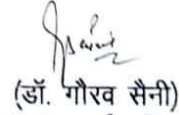 (डॉ. गौरव सैनी)